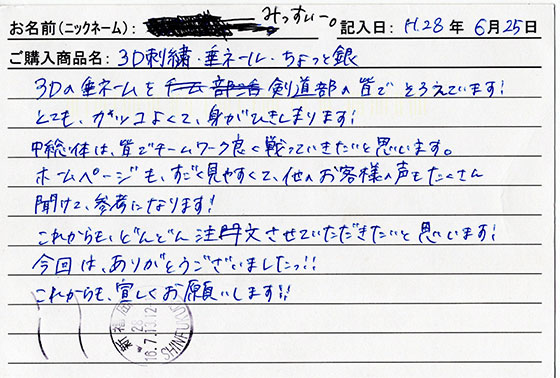 お名前(ニックネーム): みっすぃー。 記入日: H.28 年 6月25日
ご購入商品名: 3D刺繍・垂ネール・ちょっと銀
3Dの垂ネームを 剣道部の皆でそろえています!
とても、カッコよくて、身がひきしまります!
中総体は、皆でチームワーク良く戦っていきたいと思います。
ホームページも、すごく見やすくて、他のお客様の声もたくさん
聞けて、参考になります!
これからも、どんどん注文させていただきたいと思います!
今回は、ありがとうございましたっ!!
これからも、宜しくお願いします!!
新福
16.7.13.12
SHINFUKU